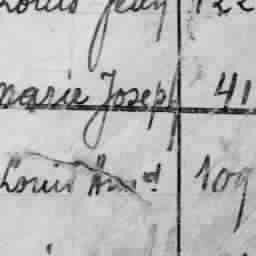 Louis Jean 122
Marie Joseph 41
Louis 109